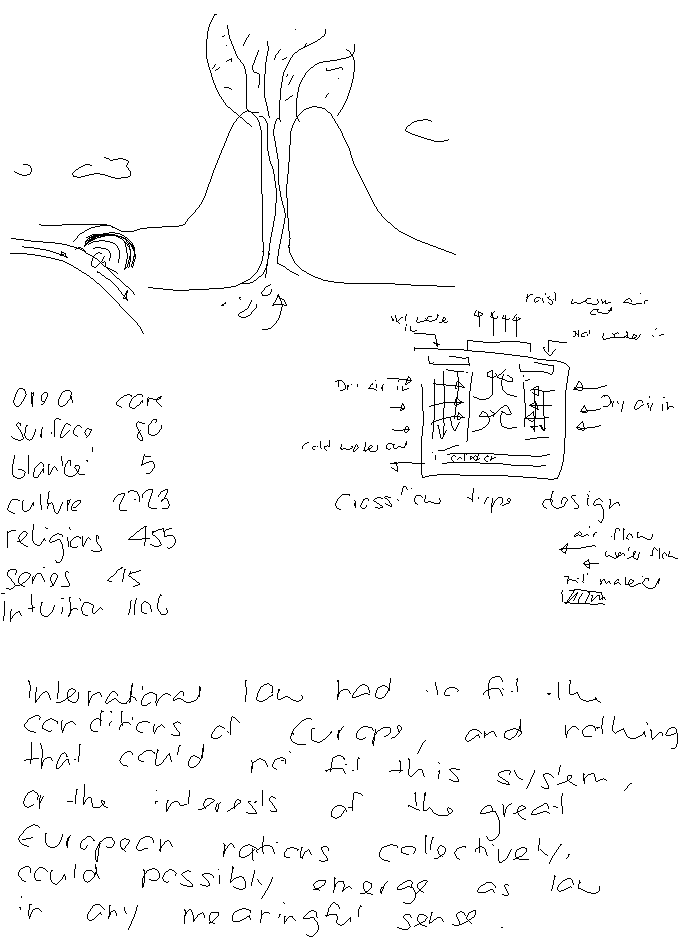 moist warm air
out
Hot water in
Hot water
in
Dry air in
Dry air in
Cold water out
collector
Crossflow type design
air flow
water flow
Fill material
area care
surface 80
blanket 5
culture 2723
religions 455
series 415
Intuition 1106
International law had to fit the
conditions of Europe, and nothing
that could no fit this system,
or the interests of the great
European nations collectively,
could possibly emerge as law
in any meaningful sense.